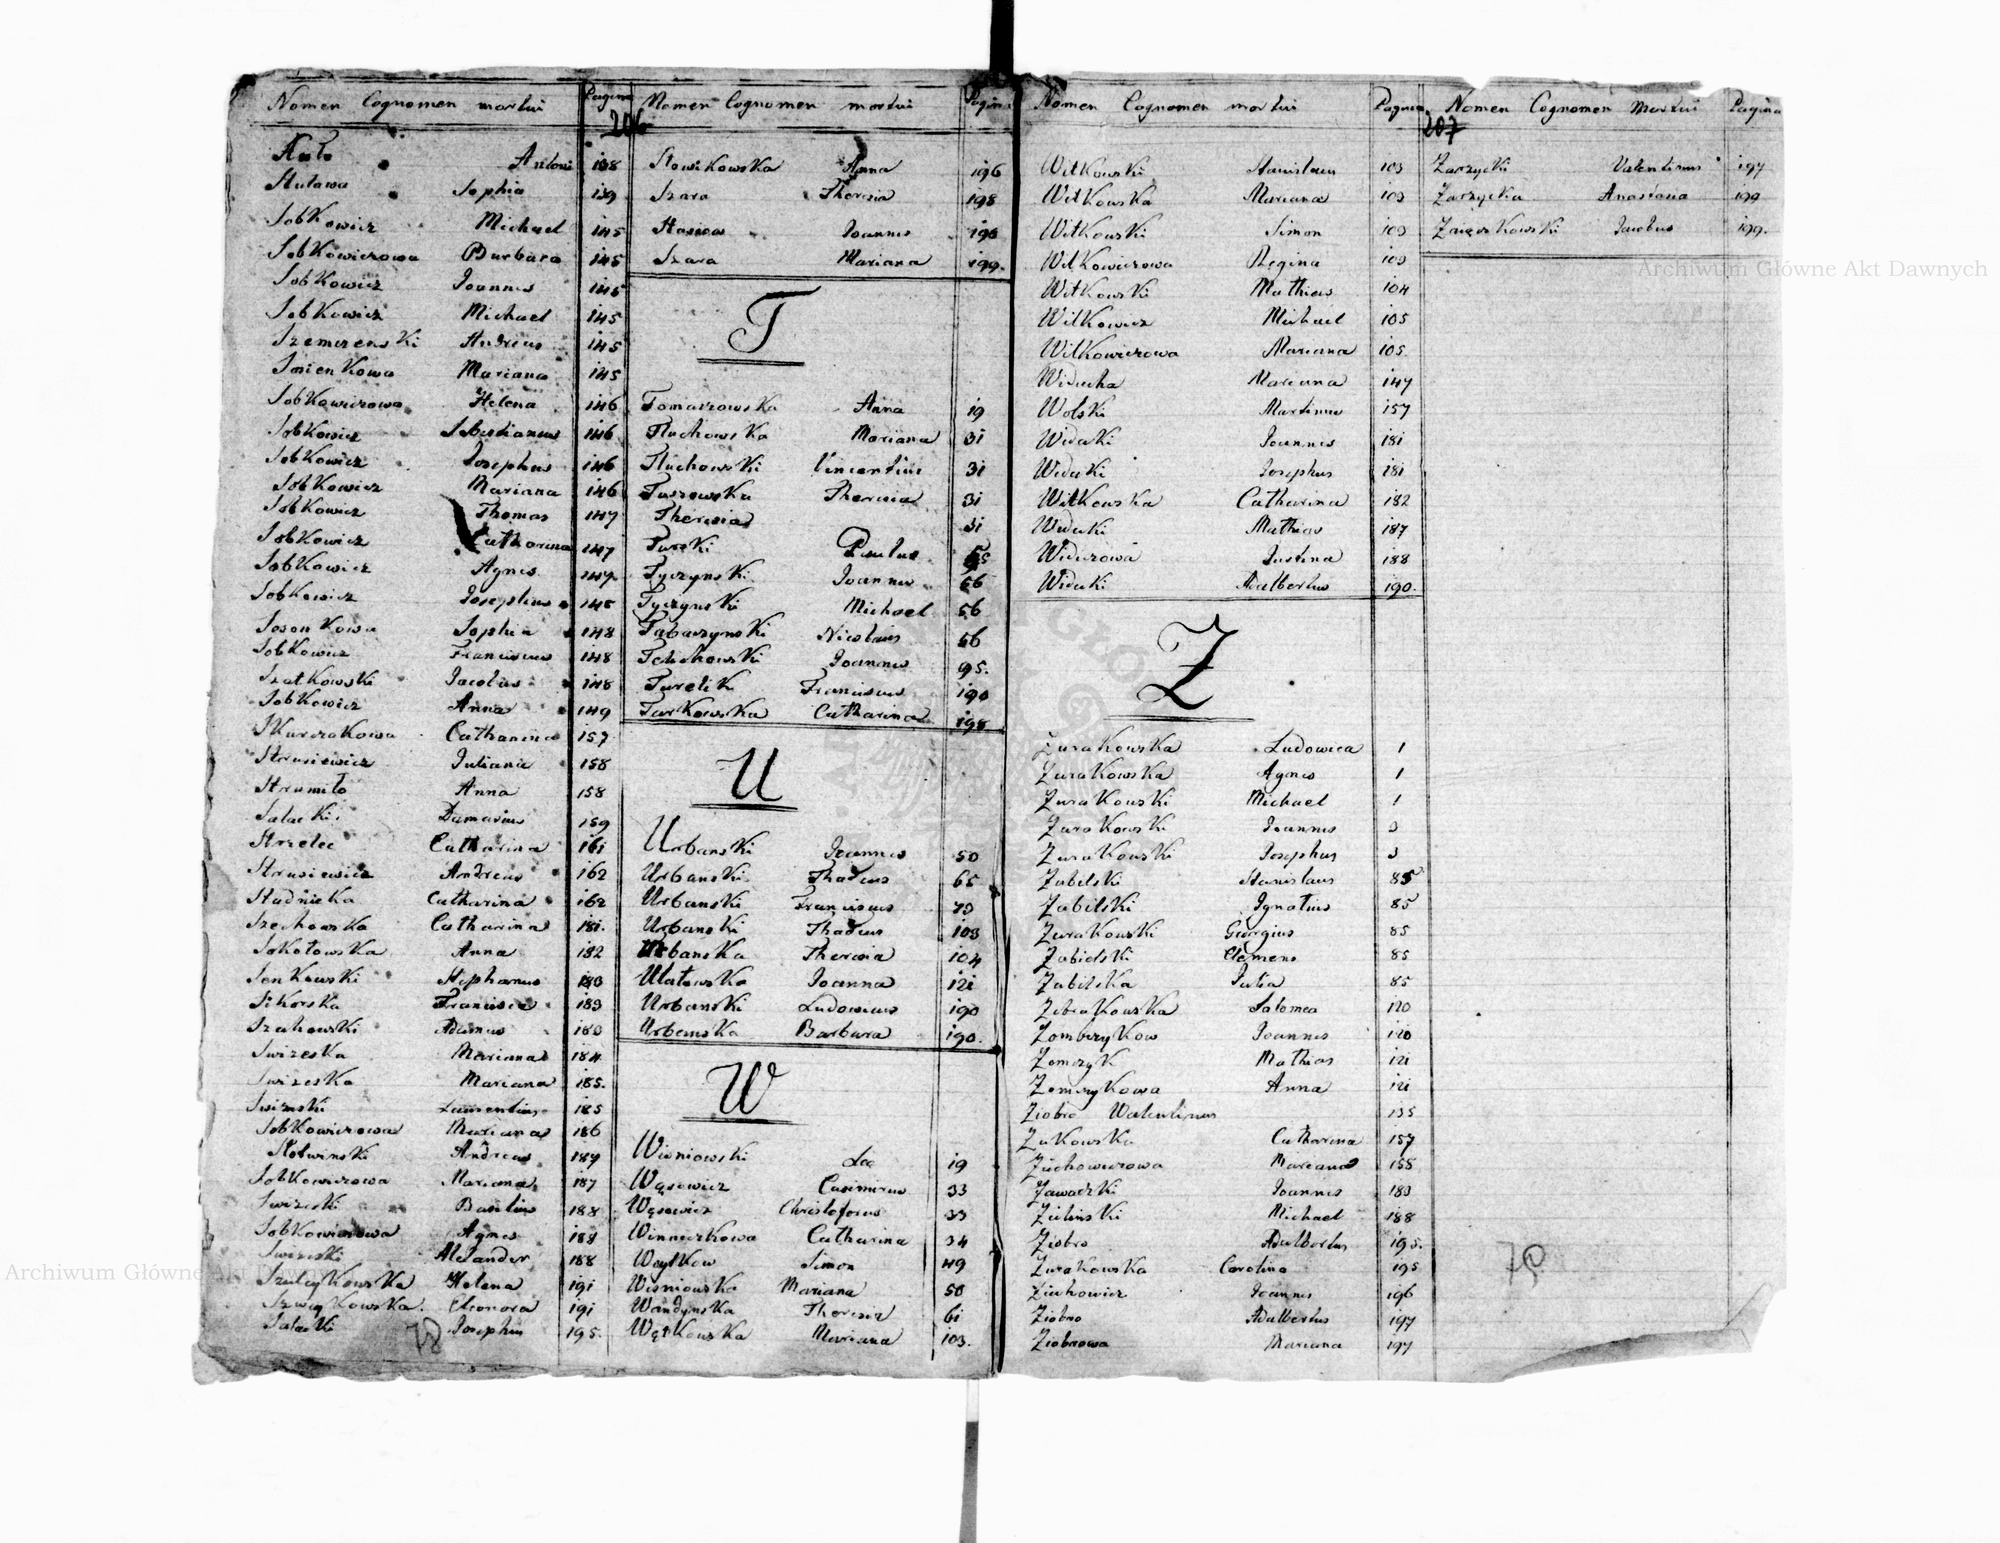 Nomen Cognomen mortui Pagina
206
Antoni 138
Stulawa Sophia 139
Sobkowicz Michael 145
Sobkowiczowa Barbara 145
Sobkowicz Joannes 145
Sobkowicz Michael 145
Andreas 145
Marianna 145
Sobkowiczowa Helena 146
Sobkowicz Sebastianus 146
Sobkowicz Josephus 146
Sobkowicz Mariana 146
Sobkowicz Thomas 147
Sobkowicz Catharina 147
Sobkowicz Agnes 147
Sobkowicz Josephus 148
Sosonkowa Sophia 148
Sobkowicz Franciscus 148
Szatkowski Jacobus 148
Sobkowicz Anna 149
Skurczakowa Catharina 157
Strusiewicz Juliana 158
Strumiło Anna 158
Salacki 159
Strzelec Catharina 161
Strusiewicz Andreas 162
Stadnicka Catharina 162
Szechowska Catharina 181.
Sokołowska Anna 182
Senkowski Stephanus 183
Sikorska Francisca 183
Szahowski Adamus 183
Swizeska Mariana 184
Swizeska Mariana 185.
Swizeski Laurentius 185
Sobkowiczowa Mariana 186
Słotwinski Andreas 187
Sobkowiczowa Mariana 187
Swizeski Basilius 188
Sobkowiczowa Agnes 188
Swizeski Alexander 188
Helena 191
Eleonora 191
Salacki Josephus 195.
78
Nomen Cognomen mortui Pagina
Słowikowska Anna 196
Szara Theresia 198
Joannes 198
Szara Mariana 199.
T
Tomaszowska Anna 19
Tluchowska Mariana 31
Tluchowski Vincentius 31
Tuszowska Theresia 31
Theresia 31
Turski Paulus
Tyczynski Joannes 56
Tyczynski Michael 56
Tabaczynski Nicolaus 56
Tchchowski Joannes 95.
Turelik Franciscus 190
Tarkowska Catharina 198
U
Urbanski Joannes 50
Urbanski Thadeus 65
Urbanski Franciscus 73
Urbanski Thadeus 103
Urbanska Theresia 104
Ulatowska Joanna 121
Urbanski Ludovicus 190
Urbanska Barbara 190.
W
Wisniowski Leo 19
Wąsowicz Casimirus 33
Wąsowicz Christoforus 33
Winniczkowa Catharina 34
Woytkow Simon 49
Wisniowska Mariana 50
Wandynska Theresia 61
Wątkowska Mariana 103.
Nomen Cognomen mortui Pagina
Witkowski Stanislaus 103
Witkowska Mariana 103
Witkowski Simon 103
Witkowiczowa Regina 103
Witkowski Mathias 104
Witkowicz Michael 105
Witkowiczowa Mariana 105
Widacha Mariana 147
Wolski Martinus 157
Widacki Joannes 181
Widacki Josephus 181
Witkowska Catharina 182
Widacki Mathias 187
Widaczowa Justina 188
Widacki Adalbertus 190.
Z
Zurakowska Ludowica 1
Zurakowska Agnes 1
Zurakowski Michael 1
Zurakowski Joannes 3
Zurakowski Josephus 3
Zabilski Stanislaus 85
Zabilski Ignatius 85
Zurakowski Georgius 85
Zabielski Clemens 85
Zabilska Julia 85
Zebrakowska Salomea 120
Zombrzykow Joannes 120
Zomrzyk Mathias 121
Zomrzykowa Anna 121
Ziobro Walentinus 135
Zukowska Catharina 157
Zuchowiczowa Mariana 158
Zawadzki Joannes 183
Zielinski Michael 188
Ziobro Adalbertus 195.
Zurakowska Carolina 195
Ziahowicz Joannes 196
Ziobro Adalbertus 197
Ziobrowa Mariana 197
Nomen Cognomen Mortui Pagina
207
Zarzycki Valentinus 197
Zarzycka Anastasia 199
Jacobus 199.
79
Archiwum Główne Akt Dawnych
Archiwum Główne Akt Dawnych